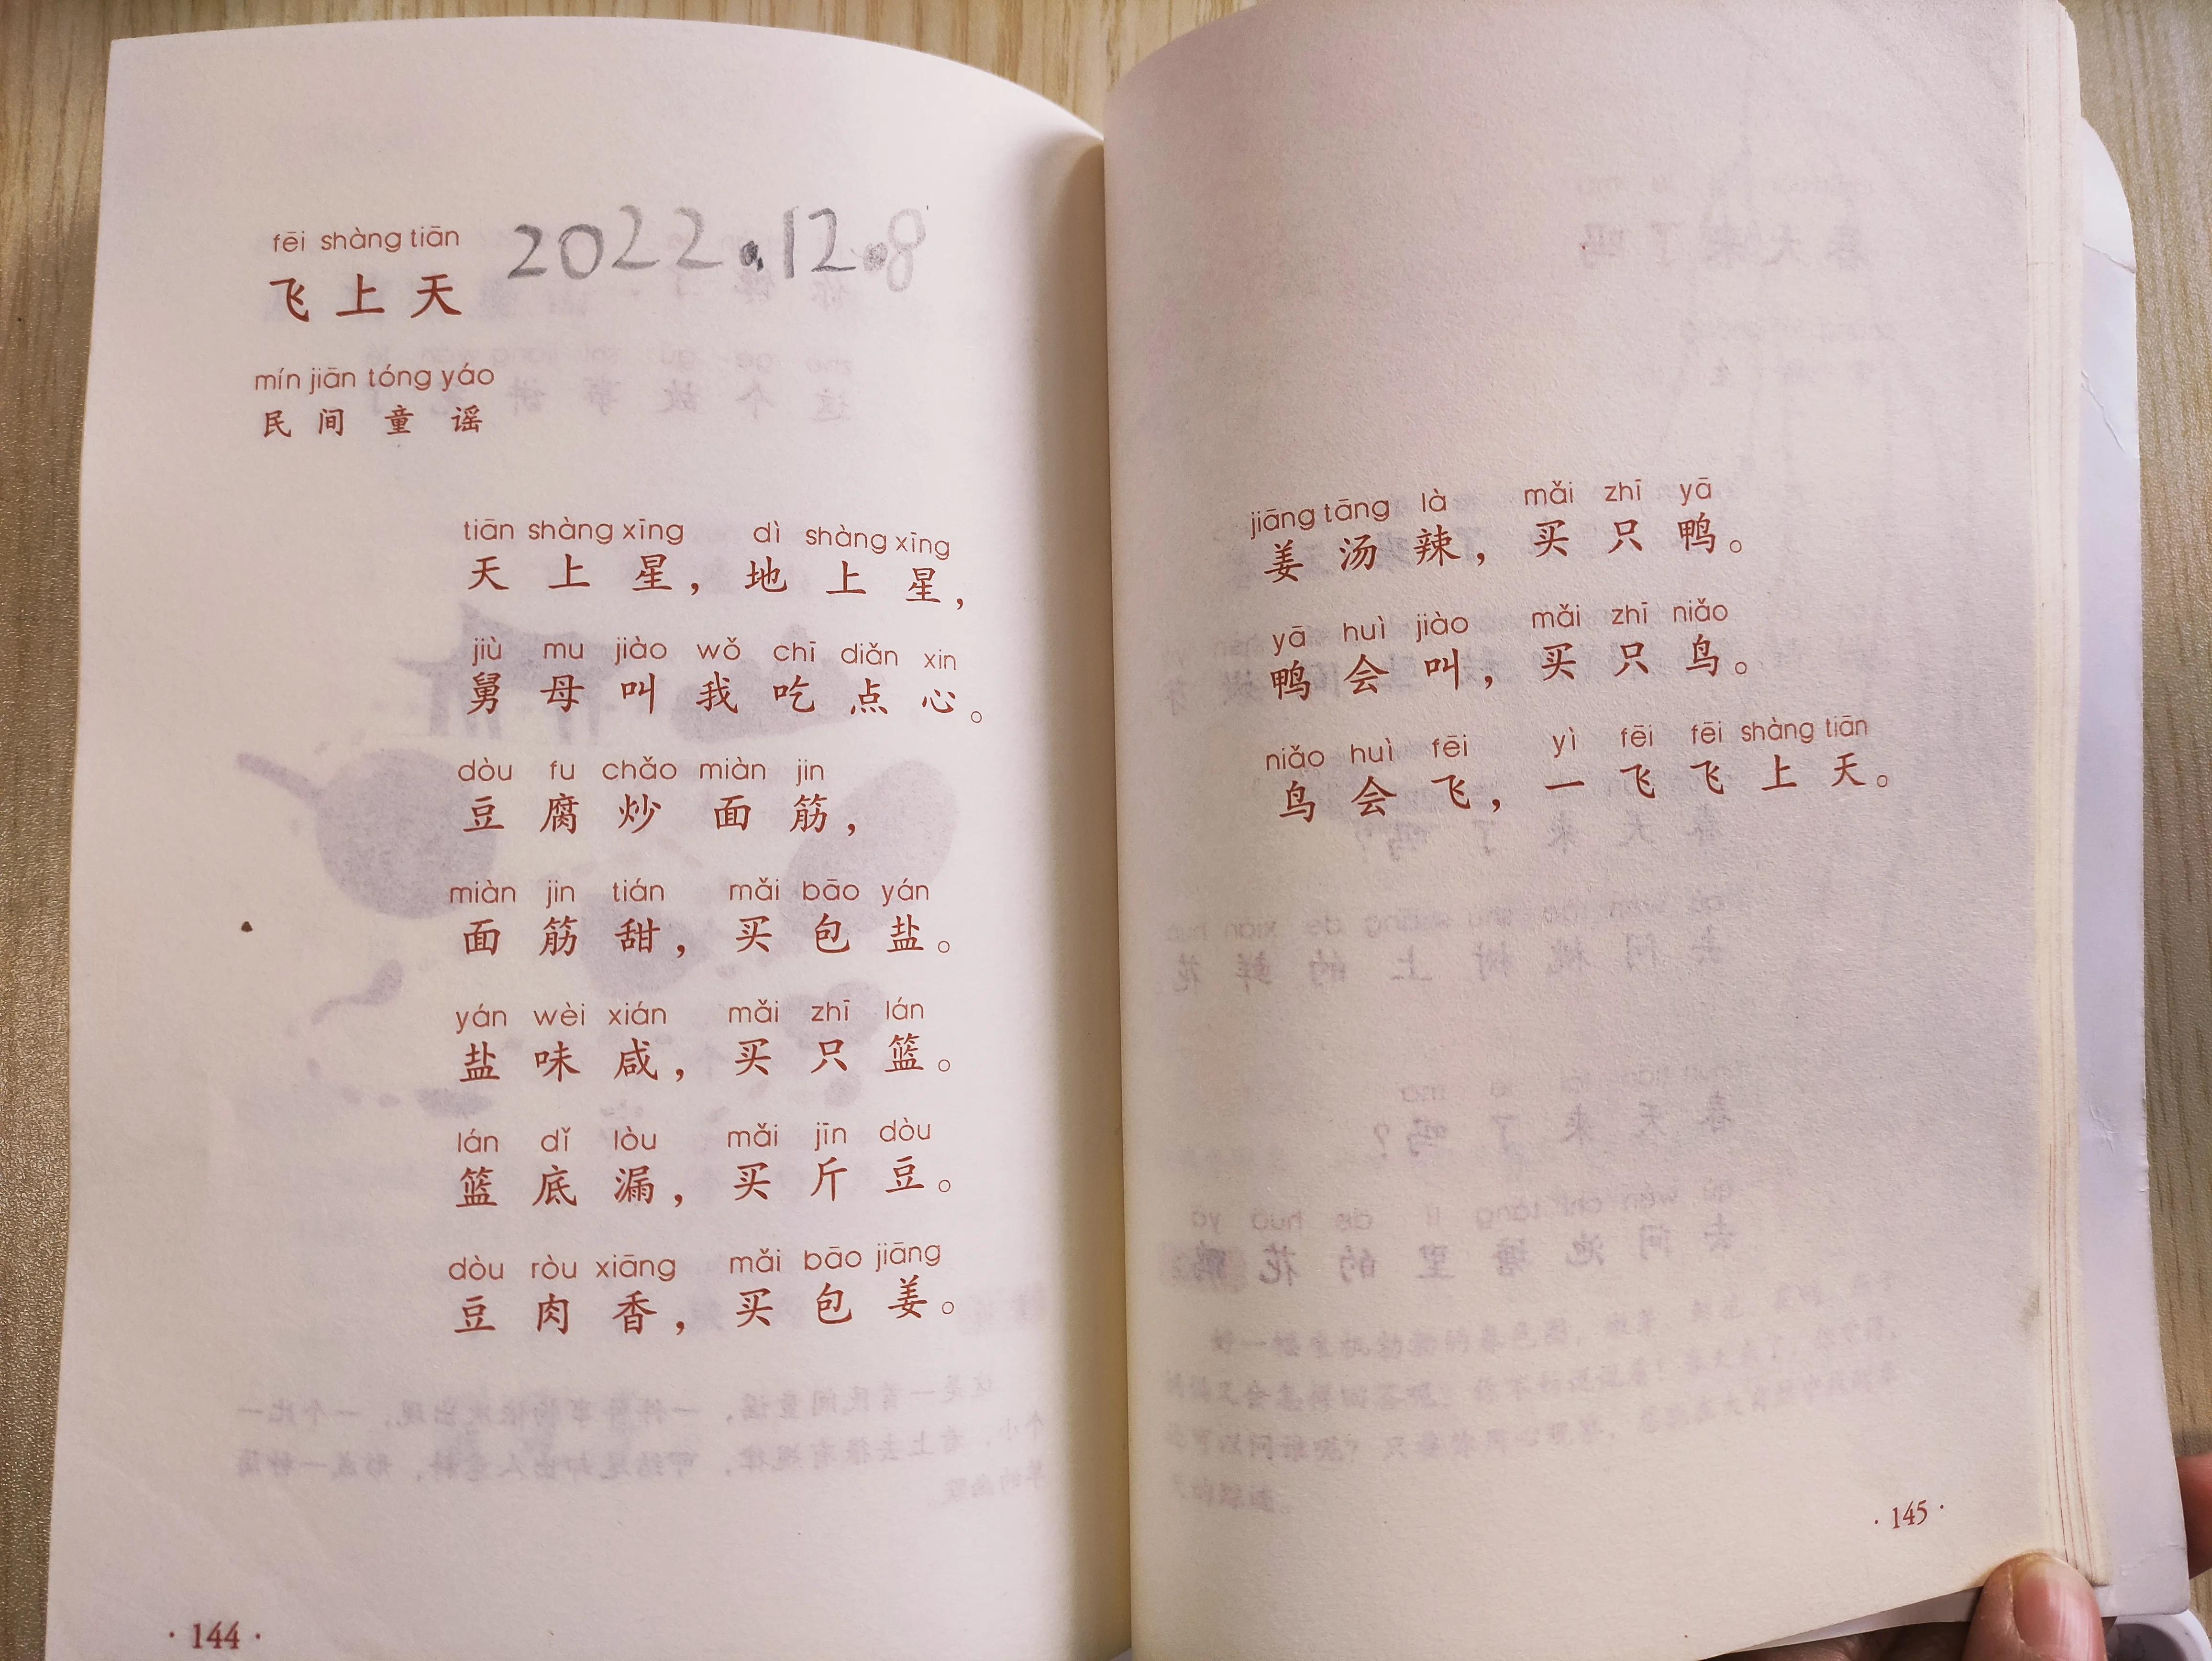 fēi shàng tiān
飞上天
2022.12.8
mín jiān tóng yáo
民间童谣
tiān shàng xīng dì shàng xīng
天上星，地上星，
jiù mu jiào wǒ chī diǎn xin
舅母叫我吃点心。
dòu fu chǎo miàn jin
豆腐炒面筋，
miàn jin tián mǎi bāo yán
面筋甜，买包盐。
yán wèi xián mǎi zhī lán
盐味咸，买只篮。
lán dǐ lòu mǎi jīn dòu
篮底漏，买斤豆。
dòu ròu xiāng mǎi bāo jiāng
豆肉香，买包姜。
·144·
jiāng tāng là mǎi zhī yā
姜汤辣，买只鸭。
yā huì jiào mǎi zhī niǎo
鸭会叫，买只鸟。
niǎo huì fēi yì fēi fēi shàng tiān
鸟会飞，一飞飞上天。
·145·